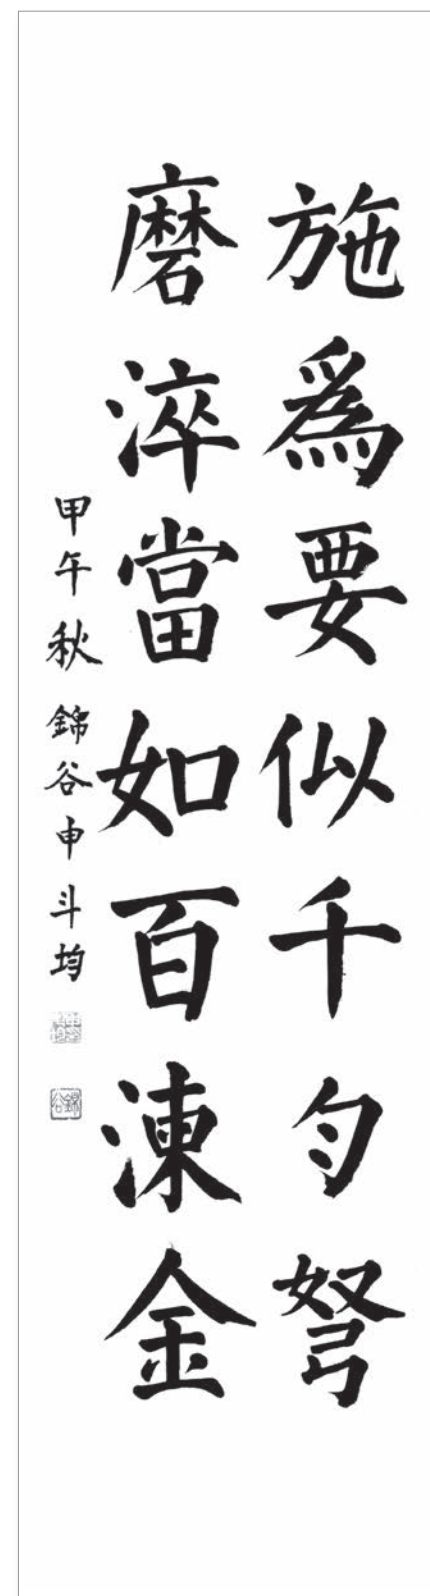 施爲要似千匀弩
磨淬當如百湅金
甲午秋 錦谷申斗均